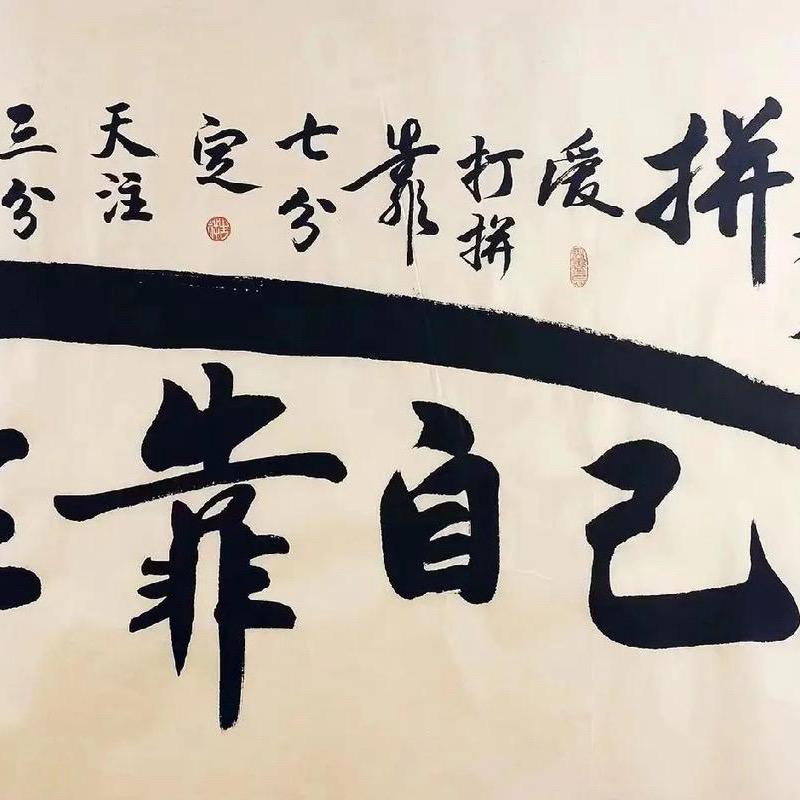 三分天注定七分靠打拼爱拼
靠自己